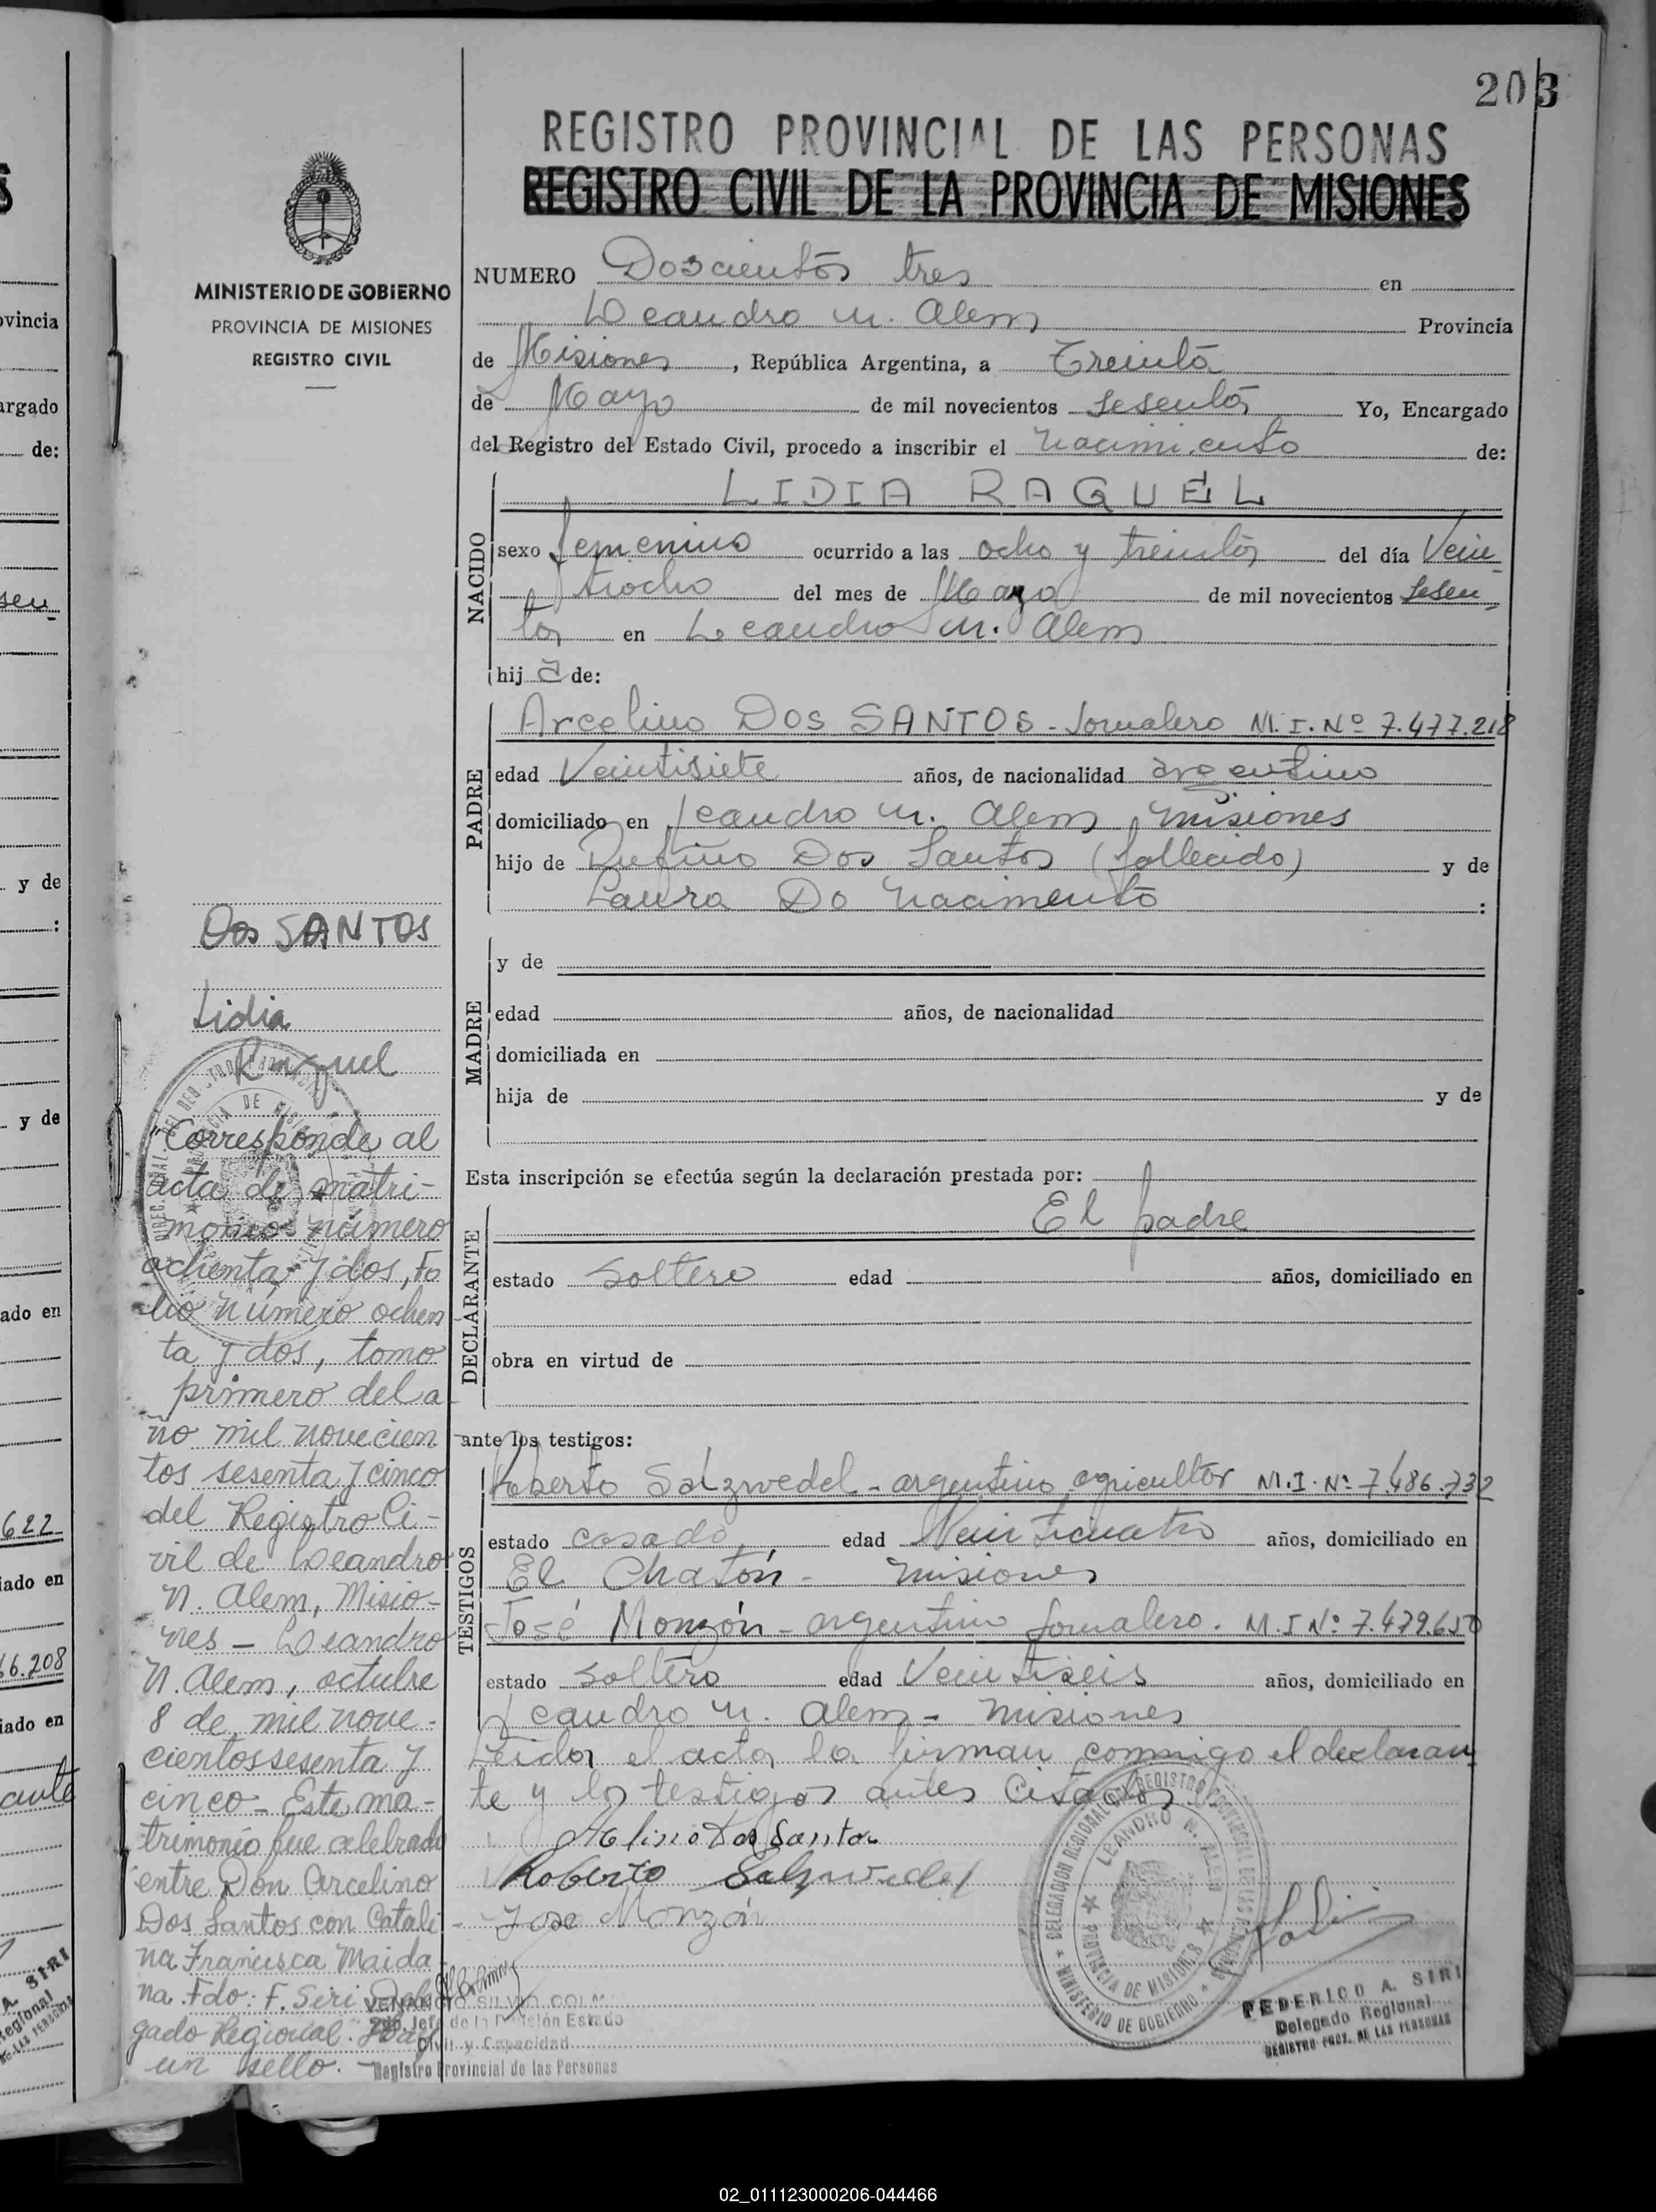 203
REGISTRO PROVINCIAL DE LAS PERSONAS
REGISTRO CIVIL DE LA PROVINCIA DE MISIONES
MINISTERIO DE GOBIERNO
PROVINCIA DE MISIONES
REGISTRO CIVIL
NUMERO Doscientos tres en
Leandro N. Alem Provincia
de Misiones, República Argentina, a Treinta
de Mayo de mil novecientos sesenta Yo, Encargado
del Registro del Estado Civil, procedo a inscribir el nacimiento de:
NACIDO
LIDIA RAQUEL
sexo femenino ocurrido a las ocho y treinta del día Vein-
tiocho del mes de Mayo de mil novecientos sesen-
ta en Leandro N. Alem
hij a de:
PADRE
Arcelino DOS SANTOS - Jornalero M.I. Nº 7.477.218
edad Veintisiete años, de nacionalidad argentino
domiciliado en Leandro N. Alem Misiones
hijo de Rufino Dos Santos (fallecido) y de
Laura Do Nacimento :
MADRE
y de
edad años, de nacionalidad
domiciliada en
hija de y de
Esta inscripción se efectúa según la declaración prestada por:
DECLARANTE
El padre
estado soltero edad años, domiciliado en
obra en virtud de
ante los testigos:
TESTIGOS
Roberto Salzwedel - argentino agricultor M.I. Nº 7.486.732
estado casado edad Veinticuatro años, domiciliado en
El Chatón - Misiones
José Monzón - argentino Jornalero. M.I Nº 7.479.650
estado soltero edad Veintiseis años, domiciliado en
Leandro N. Alem - Misiones
Leida el acta la firman conmigo el declaran
te y los testigos antes citados.
Dos Santos
Roberto Salzwedel
Jose Monzón
DELEGACION REGIONAL DEL REGISTRO PROVINCIAL DE LAS PERSONAS
LEANDRO N. ALEM
PROVINCIA DE MISIONES
MINISTERIO DE GOBIERNO
FEDERICO A. SIRI
Delegado Regional
REGISTRO PROV. DE LAS PERSONAS
Dos SANTOS
Lidia
Raquel
"Corresponde al
acta de matri-
monios número
ochenta y dos, Fo
lio número ochen
ta y dos, tomo
primero del a-
ño mil novecien
tos sesenta y cinco
del Registro Ci-
vil de Leandro
N. Alem, Misio-
nes - Leandro
N. Alem, octubre
8 de mil nove-
cientos sesenta y
cinco - Este ma-
trimonio fue celebrado
entre Don Arcelino
Dos Santos con Catali
na Francisca Maida
na. Fdo: F. Siri Dele
gado Regional. Hay
un sello. -
VENANCIO SILVIO
2do. Jefe de la División Estado
Civil y Capacidad
Registro Provincial de las Personas
ovincia
argado
de:
sen-
y de
:
y de
ado en
622
iado en
66.208
iado en
A. SIRI
Regional
02_011123000206-044466